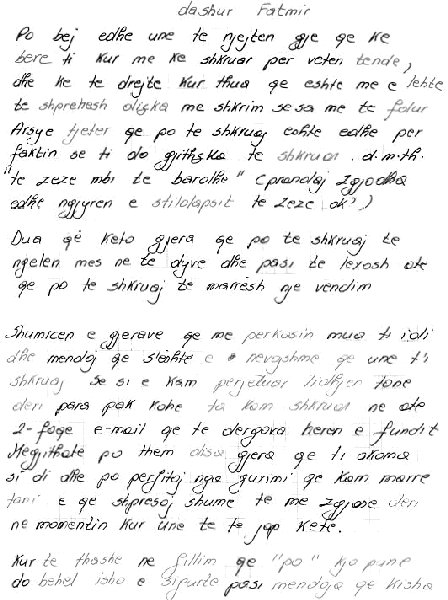 dashur Fatmir
Po bej edhe une te njejten gje qe ke
bere ti kur me ke shkruar per veten tende,
dhe ke te drejte kur thua qe eshte me e lehte
te shprehesh diçka me shkrim sesa me te folur
Arsye tjeter qe po te shkruaj eshte edhe per
faktin se ti do gjithçka te shkruar. d.m.th.
"te zeze mbi te bardhe" (prandaj zgjodha
edhe ngjyren e stilolapsit te zeze ok!)
Dua që keto gjera qe po te shkruaj te
ngelen mes ne te dyve dhe pasi te lexosh ate
qe po te shkruaj te marresh nje vendim
Shumicen e gjerave qe me perkasin mua ti i di
dhe mendoj qe s'eshte e nevojshme qe une t'i
shkruaj se si e kam perjetuar lidhjen tone
deri para pak kohe ta kam shkruar ne ato
2-faqe e-mail qe te dergova heren e fundit
Megjithate po them disa gjera qe ti akoma
si di dhe po perfitoj nga gurimi qe kam marre
tani e qe shpresoj shume te me zgjase deri
ne momentin kur une te te jap kete.
Kur te thashe ne fillim qe "po" kjo pune
do behet isha e sigurte pasi mendoja qe kisha